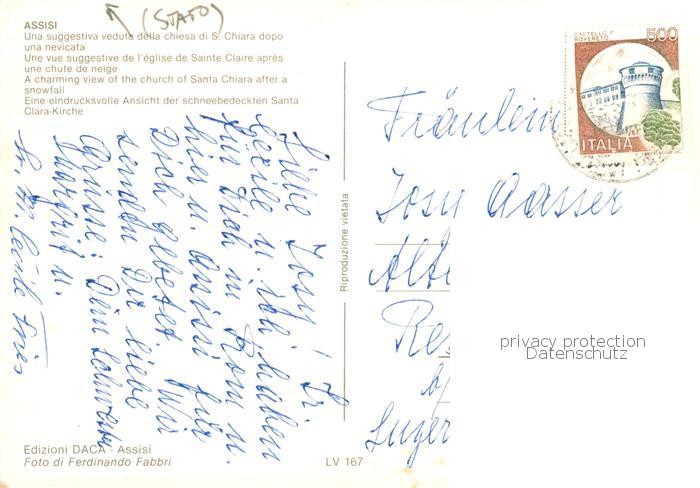 (STATO)
ASSISI
Una suggestiva veduta della chiesa di S. Chiara dopo
una nevicata
Une vue suggestive de l'église de Sainte Claire après
une chute de neige
A charming view of the church of Santa Chiara after a
snowfall
Eine eindrucksvolle Ansicht der schneebedeckten Santa
Clara-Kirche
Liebe Josy! Sr.
Cécile u. ich haben
für Dich in Rom u.
hier u. Assisi für
Dich gebetet. Wir
senden Dir liebe
Grüsse: Dein
Margrit u.
Sr. M. Cécile Fries
Edizioni DACA - Assisi
Foto di Ferdinando Fabbri
LV 167
Riproduzione vietata
CASTELLO DI
ROVERETO
500
ITALIA
Fräulein
Josy
Alte
privacy protection
Datenschutz
Luzer